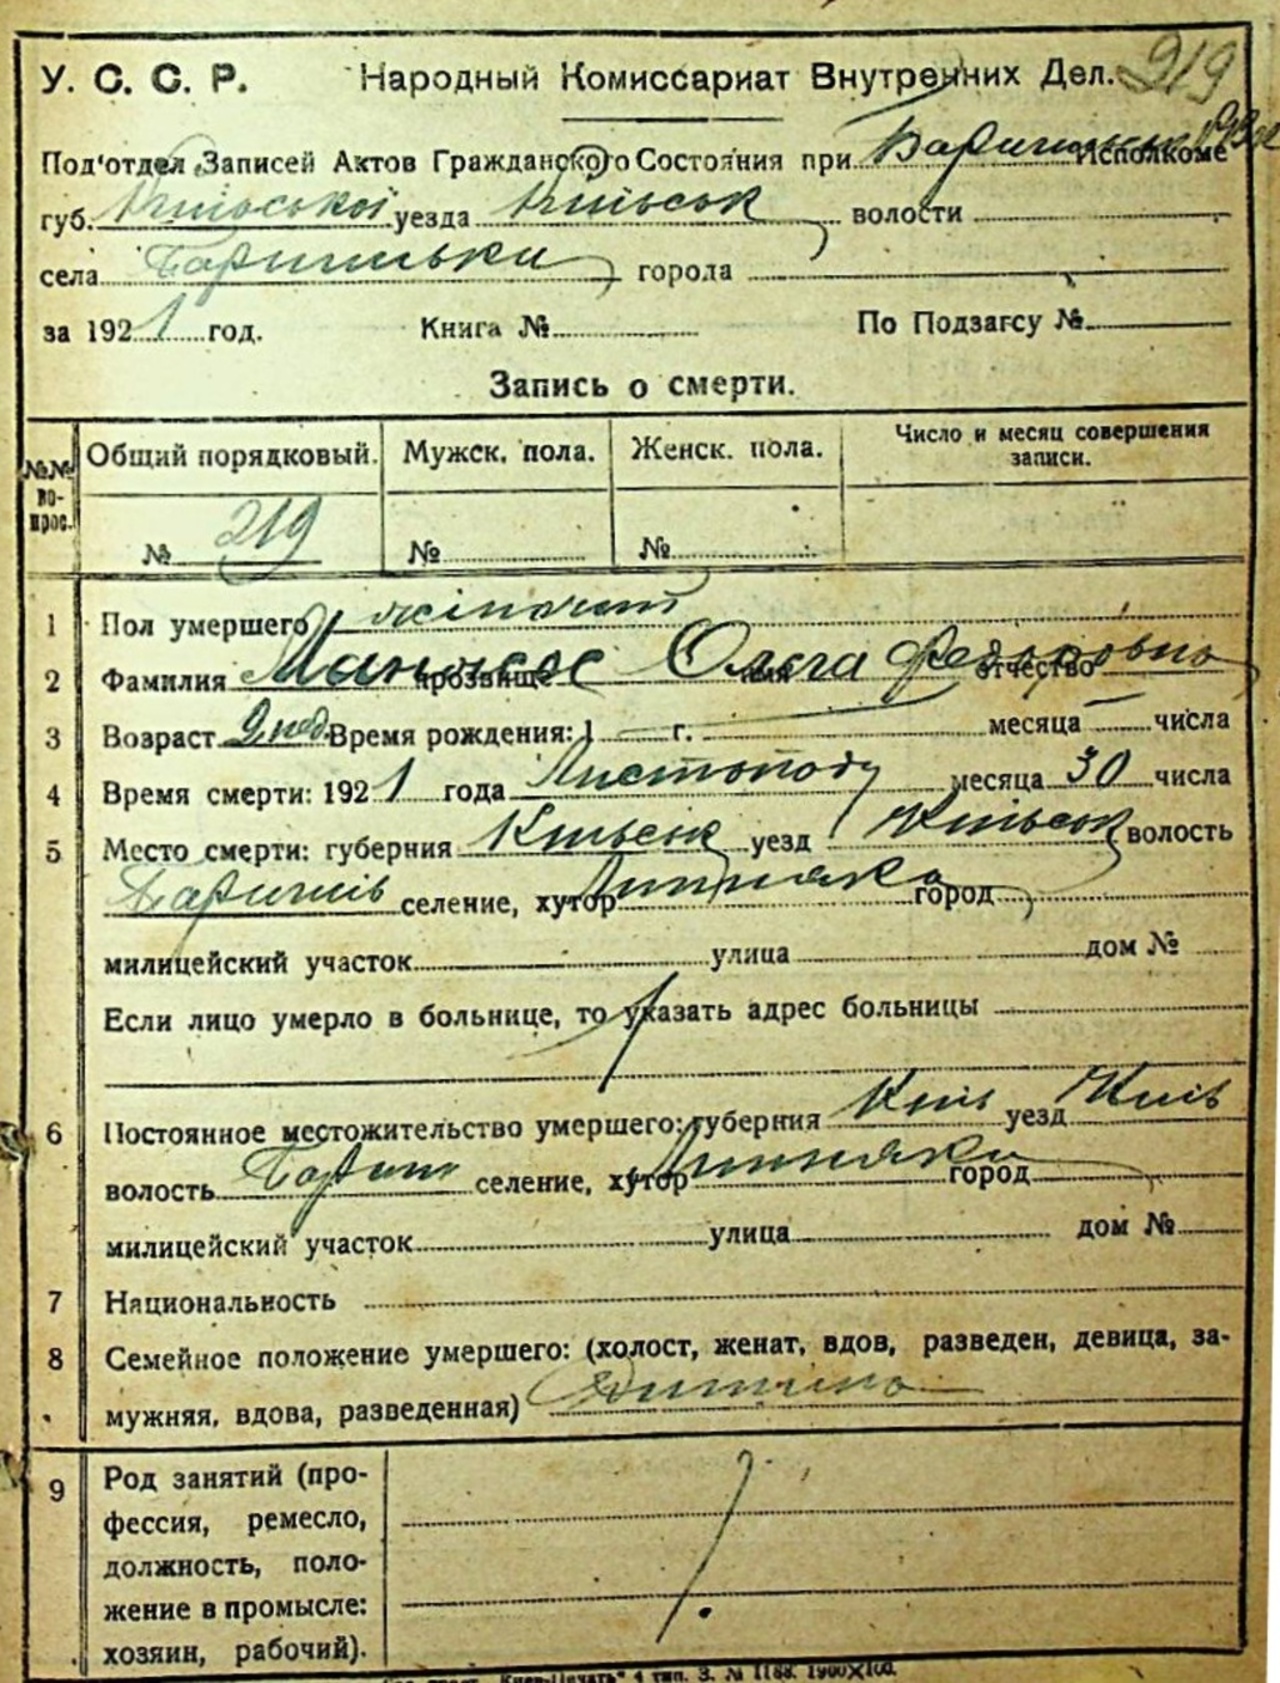 219
У. С. С. Р. Народный Комиссариат Внутренних Дел.
Под'отдел Записей Актов Гражданского Состояния при Исполкоме
губ. Київської уезда Київськ волости
села города
за 1921 год. Книга № По Подзагсу №
Запись о смерти.
№№ во-прос. Общий порядковый. Мужск. пола. Женск. пола. Число и месяц совершения записи.
№ 219 № №
1 Пол умершего жіночий
2 Фамилия прозвище Ольга имя Федоровна отчество
3 Возраст 2 нед. Время рождения: 1 — г. — месяца — числа
4 Время смерти: 1921 года Листопаду месяца 30 числа
5 Место смерти: губерния Київськ уезд Київськ волость
Баришів селение, хутор город
милицейский участок улица дом №
Если лицо умерло в больнице, то указать адрес больницы
6 Постоянное местожительство умершего: губерния Київ уезд Київ
волость Бариш селение, хутор город
милицейский участок улица дом №
7 Национальность
8 Семейное положение умершего: (холост, женат, вдов, разведен, девица, за-
мужняя, вдова, разведенная) Дитина
9 Род занятий (про-
фессия, ремесло,
должность, поло-
жение в промысле:
хозяин, рабочий).
"Киев-Печать" 4 тип. З. № 1188. 1900×100.